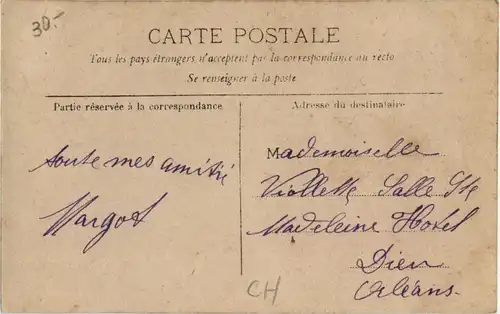 30-
CARTE POSTALE
Tous les pays étrangers n'acceptent pas la correspondance au recto
Se renseigner à la poste
Partie réservée à la correspondance
toute mes amitié
Margot
Adresse du destinataire
Mademoiselle
Viollette Salle Ste
Madeleine Hotel
Dieu
Orléans
CH